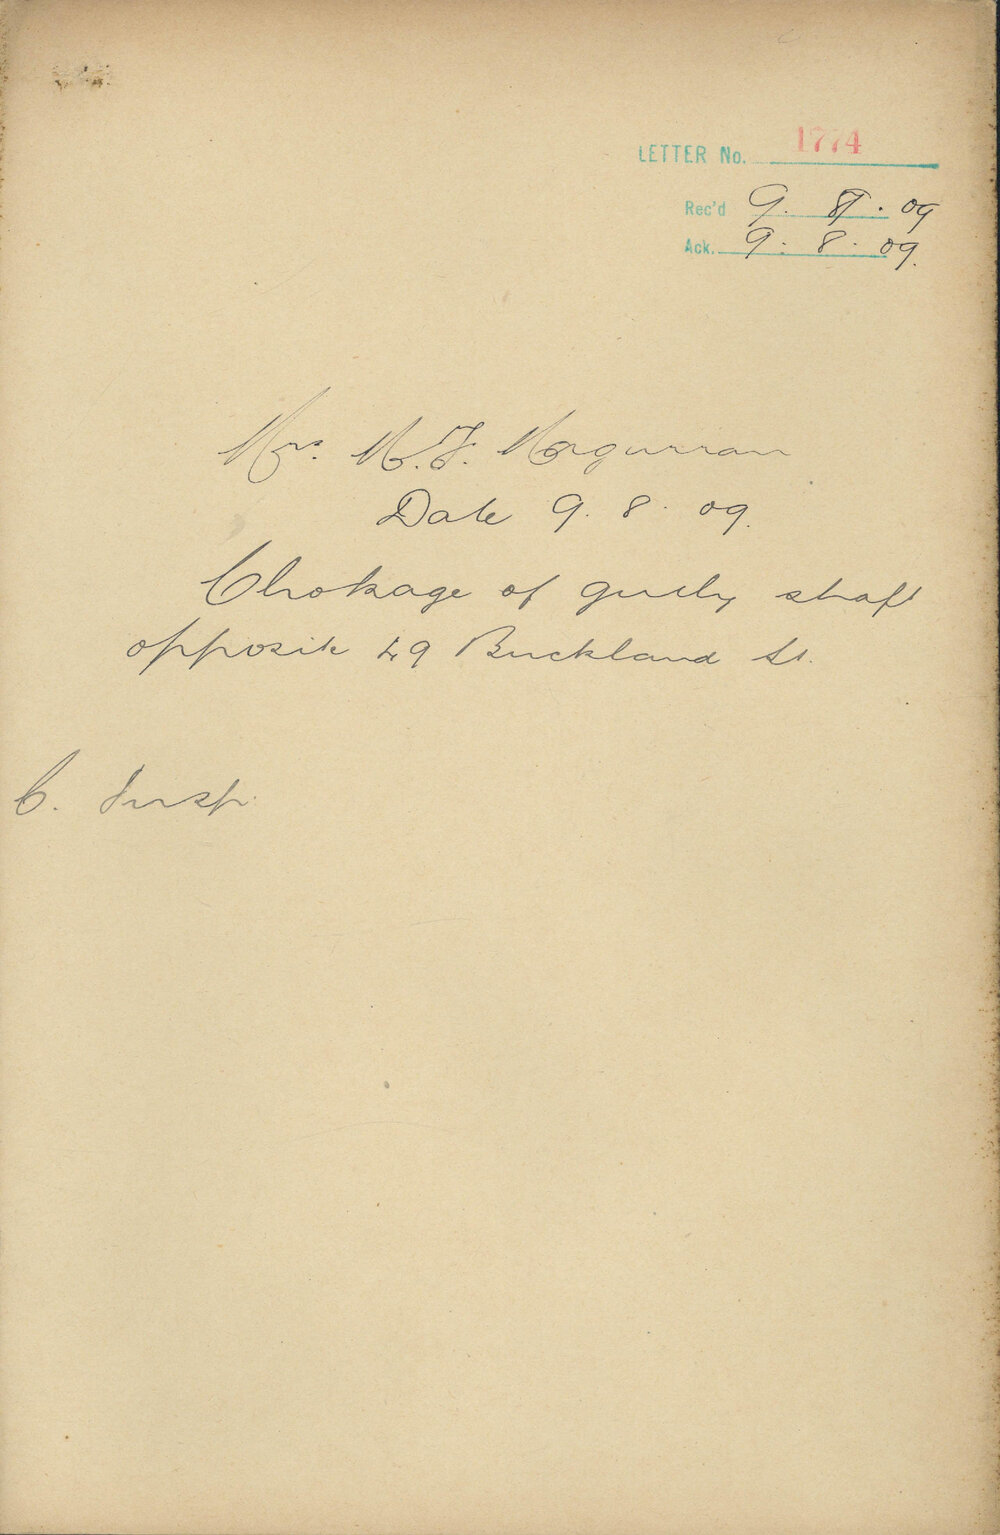 LETTER No. 1774
Rec'd 9. 8. 09
Ack. 9. 8. 09.
Mrs. M. J.
Date 9. 8. 09.
Chokage of gully shaft
opposite 49 Buckland St.
C. Insp.